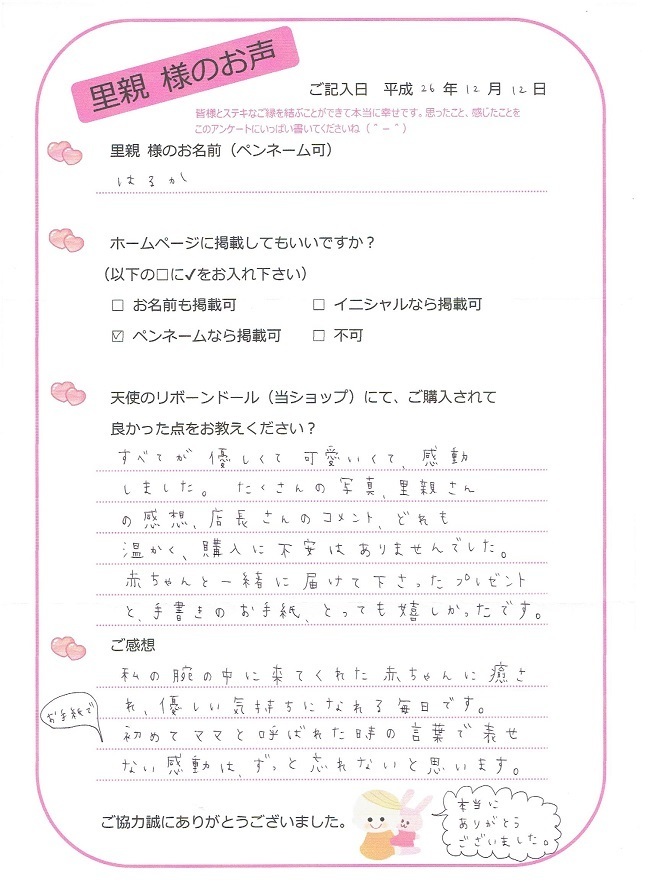 里親 様のお声
ご記入日 平成 26 年 12 月 12 日
皆様とステキなご縁を結ぶことができて本当に幸せです。思ったこと、感じたことを
このアンケートにいっぱい書いてくださいね（＾－＾）
里親 様のお名前（ペンネーム可）
はるか
ホームページに掲載してもいいですか？
（以下の□に✓をお入れ下さい）
□ お名前も掲載可 □ イニシャルなら掲載可
☑ ペンネームなら掲載可 □ 不可
天使のリボーンドール（当ショップ）にて、ご購入されて
良かった点をお教えください？
すべてが優しくて可愛いくて、感動
しました。たくさんの写真、里親さん
の感想、店長さんのコメント、どれも
温かく、購入に不安はありませんでした。
赤ちゃんと一緒に届けて下さったプレゼント
と、手書きのお手紙、とっても嬉しかったです。
ご感想
私の腕の中に来てくれた赤ちゃんに癒さ
れ、優しい気持ちになれる毎日です。
お手紙で
初めてママと呼ばれた時の言葉で表せ
ない感動は、ずっと忘れないと思います。
ご協力誠にありがとうございました。
本当に
ありがとう
ございました。